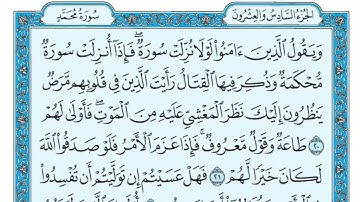 الجزء السادس والعشرون
سورة محمد
وَيَقُولُ الَّذِينَ ءَامَنُوا لَوْلَا نُزِّلَتْ سُورَةٌ ۖ فَإِذَا أُنزِلَتْ سُورَةٌ
مُّحْكَمَةٌ وَذُكِرَ فِيهَا الْقِتَالُ رَأَيْتَ الَّذِينَ فِي قُلُوبِهِم مَّرَضٌ
يَنظُرُونَ إِلَيْكَ نَظَرَ الْمَغْشِيِّ عَلَيْهِ مِنَ الْمَوْتِ ۖ فَأَوْلَىٰ لَهُمْ
٢٠ طَاعَةٌ وَقَوْلٌ مَّعْرُوفٌ ۚ فَإِذَا عَزَمَ الْأَمْرُ فَلَوْ صَدَقُوا اللَّهَ
لَكَانَ خَيْرًا لَّهُمْ ٢١ فَهَلْ عَسَيْتُمْ إِن تَوَلَّيْتُمْ أَن تُفْسِدُوا